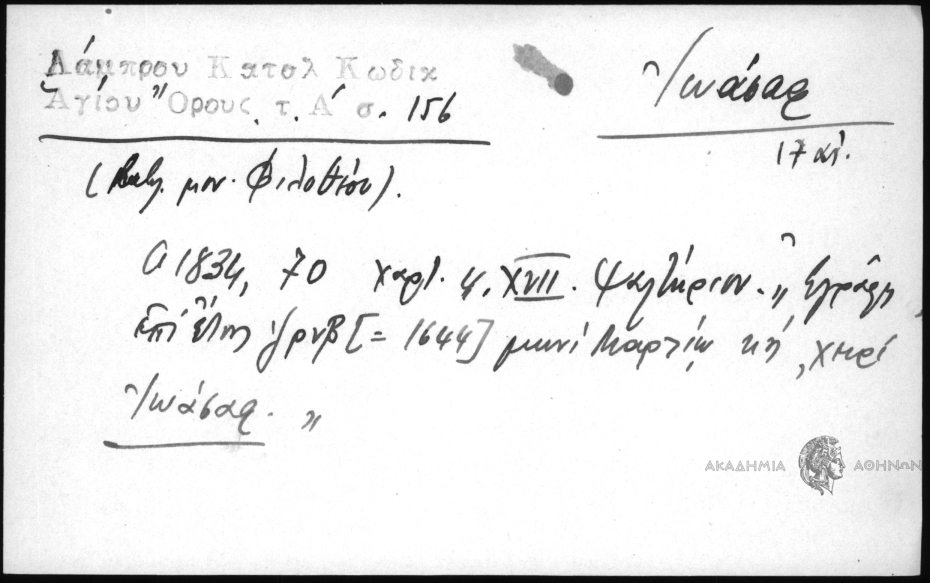 Λάμπρου Κατολ Κωδικ
Ἁγίου Ὄρους τ. Α΄ σ. 156
Ἰωάσαφ
17 αἰ.
(Βιβλ. μον. Φιλοθέου).
α 1834, 70 χαρτ. 4. XVII. Ψαλτήριον. „Ἐγράφη
ἐπὶ ἔτους ͵ζρνβ [= 1644] μηνὶ Μαρτίῳ κη, χειρὶ
Ἰωάσαφ. „
ΑΚΑΔΗΜΙΑ ΑΘΗΝΩΝ